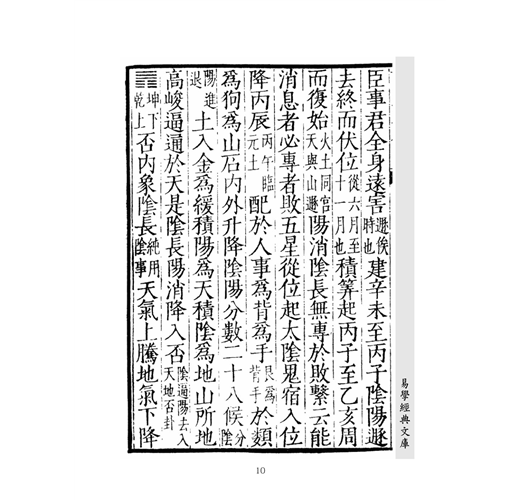 臣事君全身遠害遯俟時也建辛未至丙子陰陽遯
去終而伏位從六月至十一月也積筭起丙子至乙亥周
而復始火土同宮天與山遯陽消陰長無專於敗繫云能
消息者必專者敗五星從位起太陰鬼宿入位
降丙辰丙午臨元士配於人事為背為手艮為背手於類
為狗為山石內外升降陰陽分數二十八候分陰
陽進退土入金為緩積陽為天積陰為地山所地
高峻逼通於天是陰長陽消降入否陰逼陽去入天地否卦
䷋坤下乾上否內象陰長純用陰事天氣上騰地氣下降
易學經典文庫
10